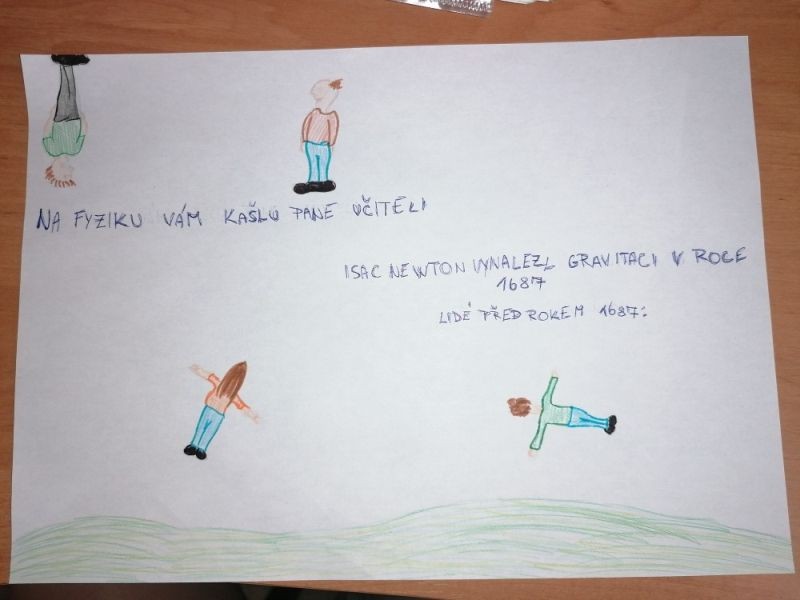 NA FYZIKU VÁM KAŠLU PANE UČITELI
ISAC NEWTON VYNALEZL GRAVITACI V ROCE
1687
LIDÉ PŘED ROKEM 1687: